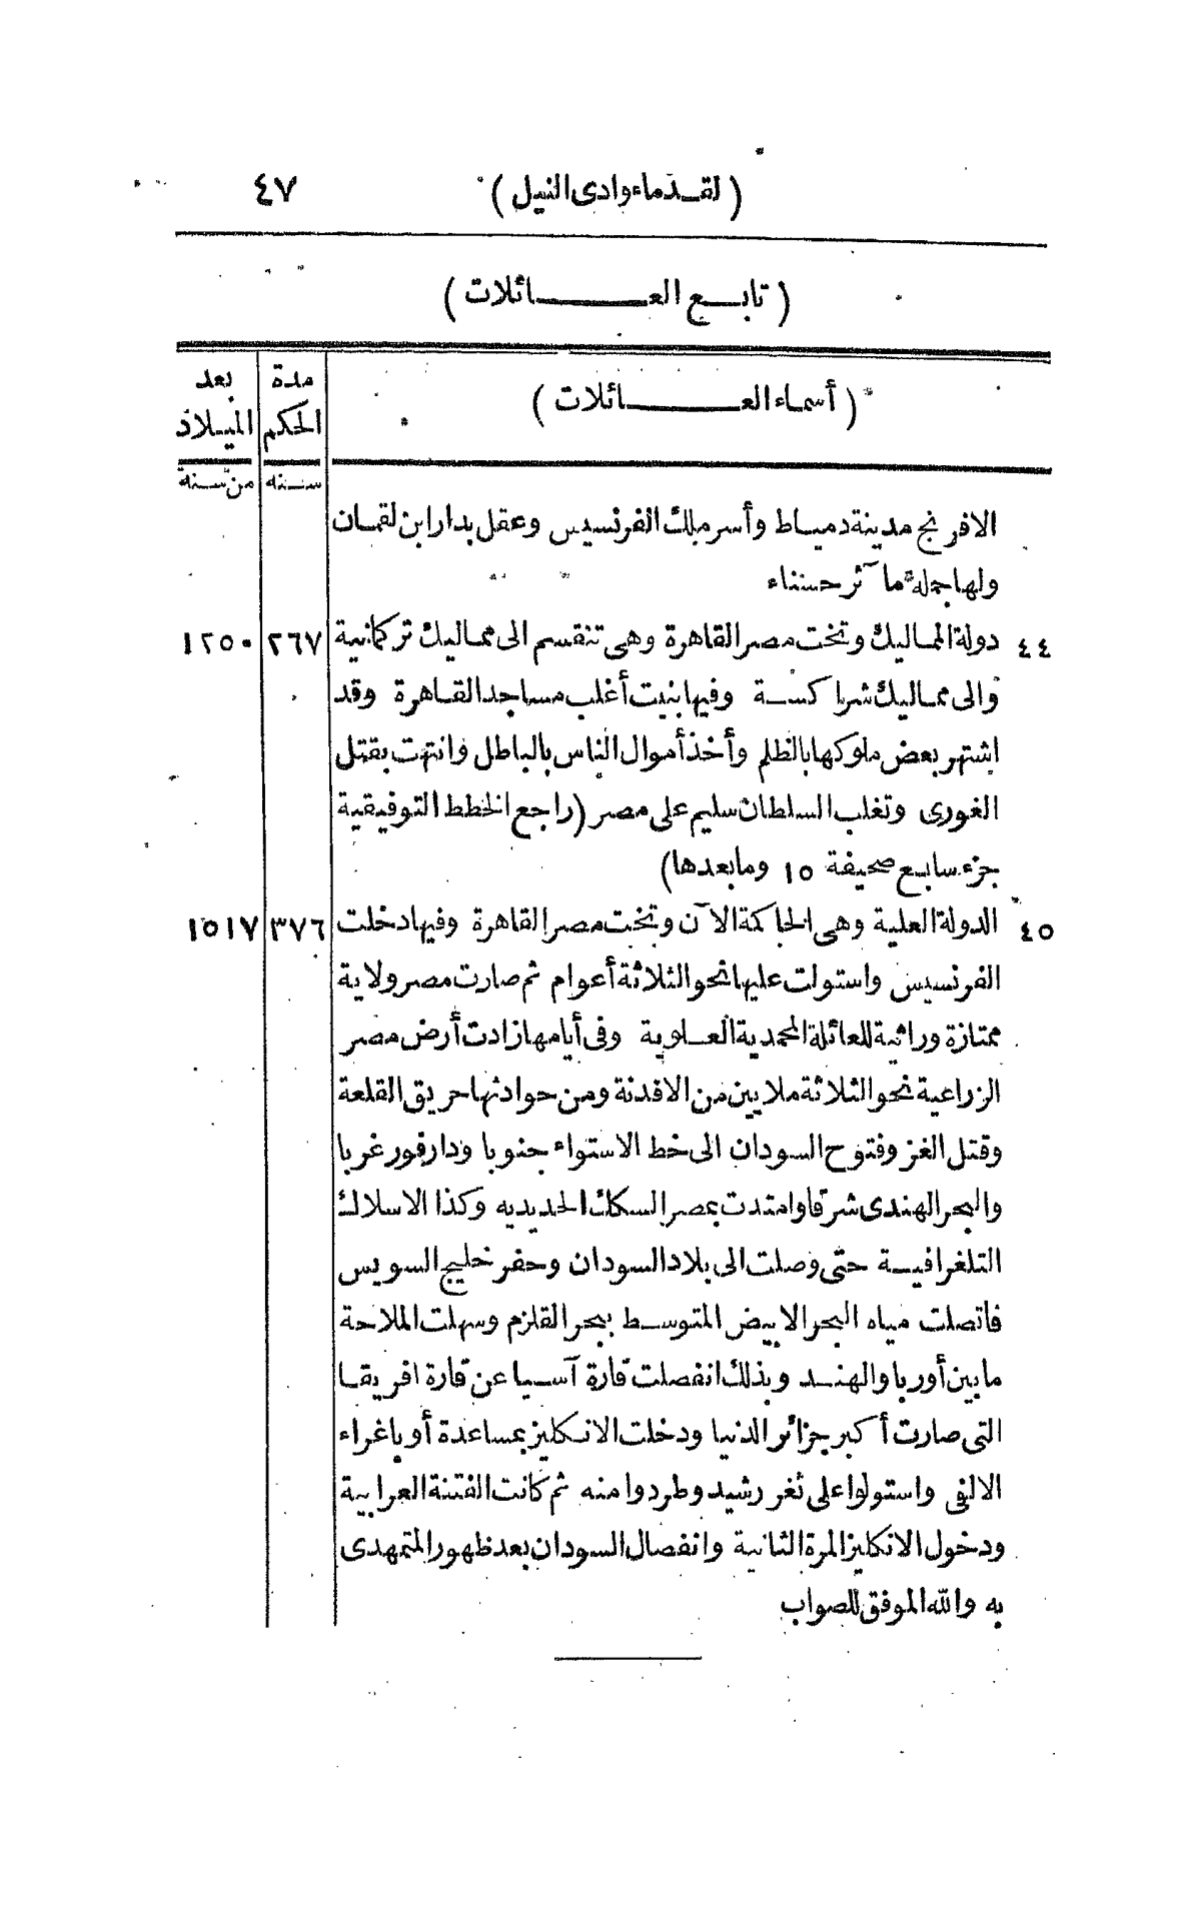 (لقدماء وادى النيل) ٤٧
(تابع العائلات)
(أسماء العائلات) مدة الحكم بعد الميلاد
سنه من سنة
الافرنج مدينة دمياط وأسر ملك الفرنسيس وعقل بدار ابن لقمان
ولها جملة مآثر حسناء
٤٤ دولة المماليك وتخت مصر القاهرة وهى تنقسم الى مماليك تركمانية ٢٦٧ ١٢٥٠
والى مماليك شراكسة وفيها بنيت أغلب مساجد القاهرة وقد
اشتهر بعض ملوكها بالظلم وأخذ أموال الناس بالباطل وانتهت بقتل
الغورى وتغلب السلطان سليم على مصر (راجع الخطط التوفيقية
جزء سابع صحيفة ١٥ وما بعدها)
٤٥ الدولة العلية وهى الحاكمة الآن وتخت مصر القاهرة وفيها دخلت ٣٧٦ ١٥١٧
الفرنسيس واستولت عليها نحو الثلاثة أعوام ثم صارت مصر ولاية
ممتازة وراثية للعائلة المحمدية العلوية وفى أيامها زادت أرض مصر
الزراعية نحو الثلاثة ملايين من الافدنة ومن حوادثها حريق القلعة
وقتل الغز وفتوح السودان الى خط الاستواء جنوبا ودارفور غربا
والبحر الهندى شرقا وامتدت بمصر السكك الحديديه وكذا الاسلاك
التلغرافية حتى وصلت الى بلاد السودان وحفر خليج السويس
فاتصلت مياه البحر الابيض المتوسط ببحر القلزم وسهلت الملاحة
ما بين أوربا والهند وبذلك انفصلت قارة آسيا عن قارة افريقا
التى صارت أكبر جزائر الدنيا ودخلت الانكليز بمساعدة أو باغراء
الالفى واستولوا على ثغر رشيد وطردوا منه ثم كانت الفتنة العرابية
ودخول الانكليز المرة الثانية وانفصال السودان بعد ظهور المتمهدى
به والله الموفق للصواب